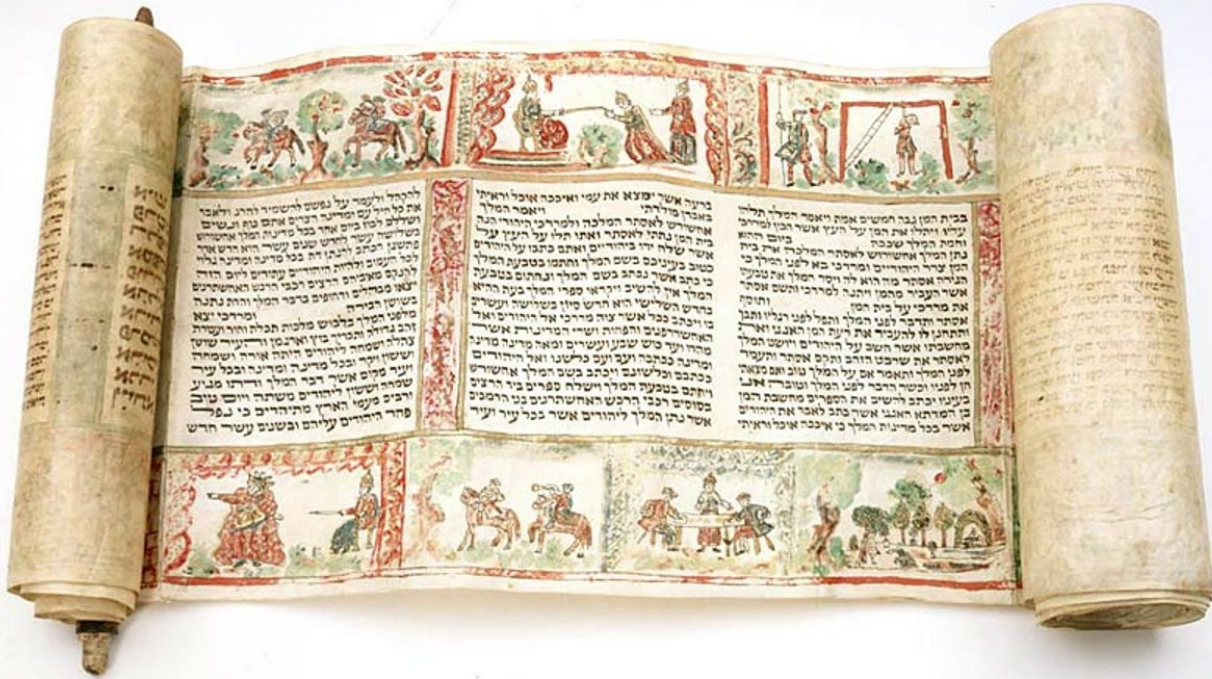 בבית המן גבה חמשים אמה ויאמר המלך תלהו
עליו ויתלו את המן על העץ אשר הכין למרדכי
וחמת המלך שככה ביום ההוא
נתן המלך אחשורוש לאסתר המלכה את בית
המן צרר היהודיים ומרדכי בא לפני המלך כי
הגידה אסתר מה הוא לה ויסר המלך את טבעתו
אשר העביר מהמן ויתנה למרדכי ותשם אסתר
את מרדכי על בית המן ותוסף
אסתר ותדבר לפני המלך ותפל לפני רגליו ותבך
ותתחנן לו להעביר את רעת המן האגגי ואת
מחשבתו אשר חשב על היהודים ויושט המלך
לאסתר את שרביט הזהב ותקם אסתר ותעמד
לפני המלך ותאמר אם על המלך טוב ואם מצאתי
חן לפניו וכשר הדבר לפני המלך וטובה אני
בעיניו יכתב להשיב את הספרים מחשבת המן
בן המדתא האגגי אשר כתב לאבד את היהודים
אשר בכל מדינות המלך כי איככה אוכל וראיתי
ברעה אשר ימצא את עמי ואיככה אוכל וראיתי
באבדן מולדתי ויאמר המלך
אחשורוש לאסתר המלכה ולמרדכי היהודי הנה
בית המן נתתי לאסתר ואתו תלו על העץ על
אשר שלח ידו ביהודיים ואתם כתבו על היהודים
כטוב בעיניכם בשם המלך וחתמו בטבעת המלך
כי כתב אשר נכתב בשם המלך ונחתום בטבעת
המלך אין להשיב ויקראו ספרי המלך בעת ההיא
בחדש השלישי הוא חדש סיון בשלושה ועשרים
בו ויכתב ככל אשר צוה מרדכי אל היהודים ואל
האחשדרפנים והפחות ושרי המדינות אשר
מהדו ועד כוש שבע ועשרים ומאה מדינה מדינה
ומדינה ככתבה ועם ועם כלשנו ואל היהודים
ככתבם וכלשונם ויכתב בשם המלך אחשורש
ויחתם בטבעת המלך וישלח ספרים ביד הרצים
בסוסים רכבי הרכש האחשתרנים בני הרמכים
אשר נתן המלך ליהודים אשר בכל עיר ועיר
להקהל ולעמד על נפשם להשמיד להרג ולאבד
את כל חיל עם ומדינה הצרים אתם טף ונשים
ושללם לבוז ביום אחד בכל מדינות המלך אחשורוש
בשלושה עשר לחדש שנים עשר הוא חדש אדר
פתשגן הכתב להנתן דת בכל מדינה ומדינה גלוי
לכל העמים ולהיות היהודיים עתודים ליום הזה
להנקם מאיביהם הרצים רכבי הרכש האחשתרנים
יצאו מבהלים ודחופים בדבר המלך והדת נתנה
בשושן הבירה ומרדכי יצא
מלפני המלך בלבוש מלכות תכלת וחור ועטרת
זהב גדולה ותכריך בוץ וארגמן והעיר שושן
צהלה ושמחה ליהודים היתה אורה ושמחה
וששון ויקר ובכל מדינה ומדינה ובכל עיר
ועיר מקום אשר דבר המלך ודתו מגיע
שמחה וששון ליהודים משתה ויום טוב
ורבים מעמי הארץ מתיהדים כי נפל
פחד היהודים עליהם ובשנים עשר חדש